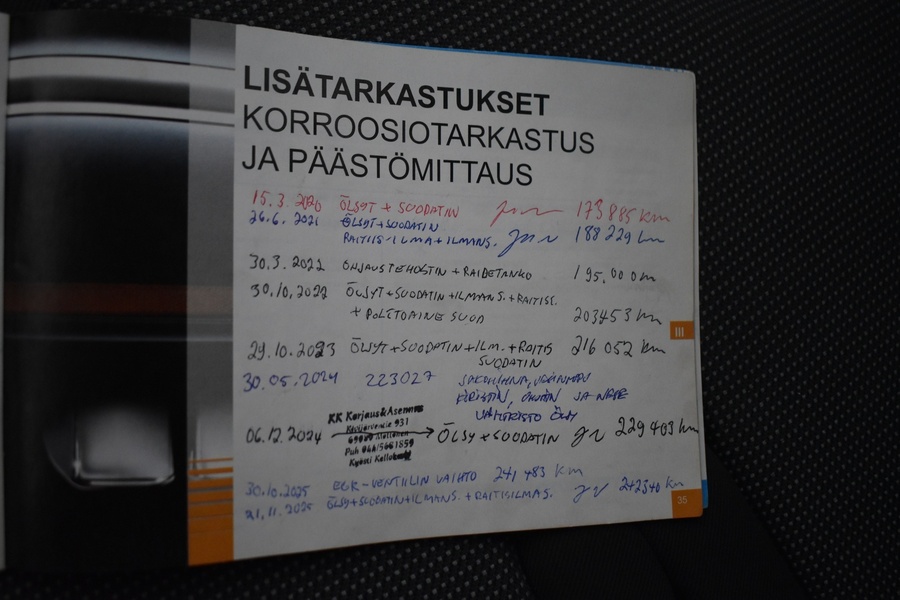 LISÄTARKASTUKSET
KORROOSIOTARKASTUS
JA PÄÄSTÖMITTAUS
15.3.2020 ÖLJYT + SUODATIN 173885 km
26.6.2021 ÖLJYT+SUODATIN
RAITIIS-ILMA+ILMANS. 188229 km
30.3.2022 OHJAUSTEHOSTIN + RAIDETANKO
30.10.2022 ÖLJYT+SUODATIN+ILMANS.+RAITISI.
+ POLTTOAINE SUOD 203453 km
29.10.2023 ÖLJYT+SUODATIN+ILM.+RAITIS 216 052 km
SUODATIN
30.05.2024 223027 JAKOHIHNA,
JA
ÖLJY
KK Korjaus&Asennus
931
Puh
Kyösti
06.12.2024 ÖLJY+SUODATIN 229 403 km
30.10.2025 EGR-VENTTIILIN VAIHTO 241 483 km
21.11.2025 ÖLJY+SUODATIN+ILMANS.+RAITISILMAS. km
III
35